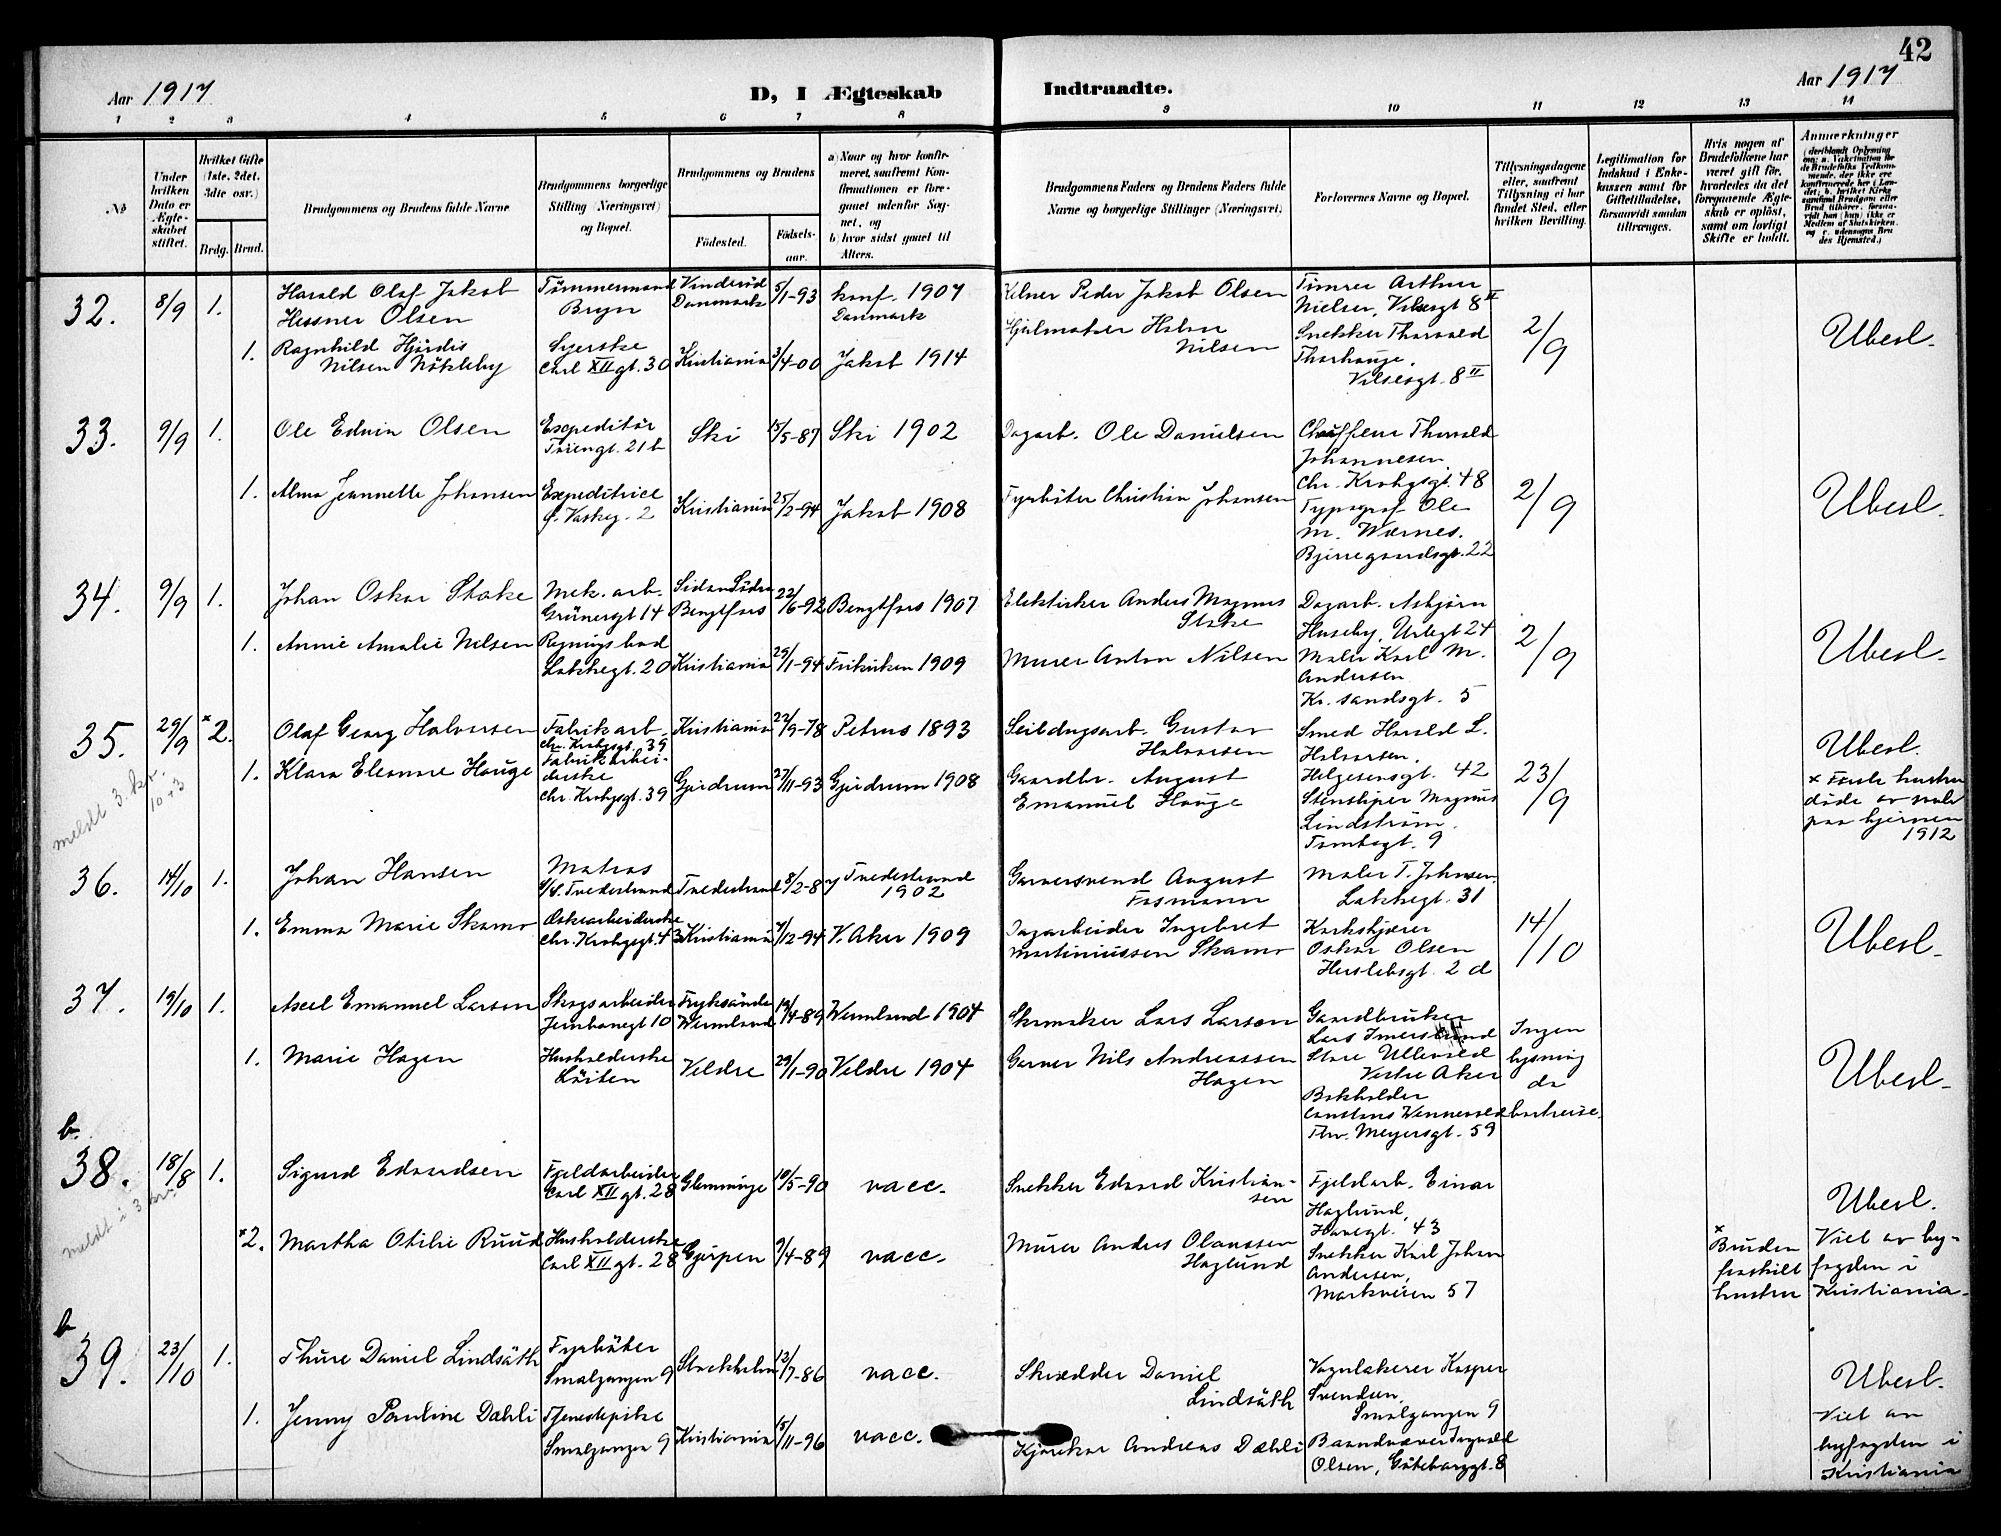 42
Aar 1917
D, I Ægteskab
Indtraadte.
Aar 1917
1 2 3 4 5 6 7 8
9 10 11 12 13 14
No
Under hvilken Dato er Ægteskabet stiftet.
Hvilket Gifte (1ste, 2det, 3die osv.)
Brdg. Brud.
Brudgommens og Brudens fulde Navne
Brudgommens borgerlige Stilling (Næringsvei) og Bopæl.
Brudgommens og Brudens
Födested.
Födselsaar.
a) Naar og hvor konfirmeret, saafremt Konfirmationen er foregaaet udenfor Sognet, og
b) hvor sidst gaaet til Alters.
Brudgommens Faders og Brudens Faders fulde Navne og borgerlige Stillinger (Næringsvei)
Forlovernes Navne og Bopæl.
Tillysningsdagene eller, saafremt Tillysning ei har fundet Sted, efter hvilken Bevilling.
Legitimation for Indskud i Enkekassen samt for Giftetilladelse, forsaavidt saadan tiltrænges.
Hvis nogen af Brudefolkene har været gift før, hvorledes da det foregaaende Ægteskab er opløst, samt om lovligt Skifte er holdt.
Anmærkninger
32. 8/9 1. Harald Olaf Jakob
Hessner Olsen
Tømmermand
Bryn
Danmark
5/1-93
konf. 1907
Danmark
Kelner Peder Jakob Olsen
Arthur
Nielsen, 8 II
1. Ragnhild Hjördis
Nilsen Nökleby
Syerske
Carl XII gt. 30
Kristiania
3/4-00
Jakob 1914
Nilsen
Snekker Thorvald
8 II
2/9
Ubesl.
33. 9/9 1. Ole Edvin Olsen
Expeditör
21 b
Ski
15/5-87
Ski 1902
Dagarb. Ole Danielsen
Chauffeur Thorvald
Johannesen
Chr. Krohgsgt. 48
1. Alma Jeannette Johansen
Expeditrice
2
Kristiania
25/2-94
Jakob 1908
Fyrböter Christian Johansen
Typograf Ole
M. Wærnes.
Bjerregaardsgt. 22
2/9
Ubesl.
34. 9/9 1. Johan Oskar Stake
Mek. arb.
Grünersgt 14
Bengtfors
22/6-92
Bengtfors 1907
Elektriker Anders Magnus
Stake
Dagarb. Asbjørn
Huseby, Urtegt 24
1. Annie Amalie Nilsen
Lakkegt. 20
Kristiania
29/1-94
Frikirken 1909
Murer Anton Nilsen
Maler Karl M.
Andersen
Kr.sandsgt. 5
2/9
Ubesl.
35. 29/9 x2. Olaf Georg Halvorsen
Fabrikarb.
Chr. Krohgsgt. 39
Kristiania
22/9-78
Petrus 1893
Seildugsarb. Gustav
Halvorsen
Smed Harald L.
Halvorsen,
Helgesensgt. 42
meldt 3. kv.
10+3
1. Klara Eleonore Hauge
Fabrikarbeiderske
Chr. Krohgsgt. 39
Gjerdrum
27/11-93
Gjerdrum 1908
Gaardbr. August
Emanuel Hauge
Stensliper Magnus
Lindström.
Tomtegt. 9
23/9
Ubesl.
x Første hustru
døde av
paa hjernen
1912
36. 14/10 1. Johan Hansen
Matros
Tvedestrand
Tvedestrand
8/2-87
Tvedestrand
1902
Garversvend August
Fasmann
Maler T. Johnsen,
Lakkegt. 31
1. Emma Marie Skamo
Æskearbeiderske
Chr. Krohgsgt. 43
Kristiania
7/12-94
V. Aker 1909
Dagarbeider Ingebret
Martiniussen Skamo
Korkskjærer
Oskar Olsen
Herslebsgt. 2 d
14/10
Ubesl.
37. 19/10 1. Axel Emanuel Larson
Skogsarbeider
Jernbanegt 10
Fryksände
Wermland
19/4-89
Wermland 1904
Skomaker Lars Larson
Gaardbruker
Lars Imerslund
Store Ullevold
Vestre Aker
1. Marie Hagen
Husholderske
Löiten
Veldre
29/1-90
Veldre 1904
Garver Nils Andreassen
Hagen
Bokholder
Constans Wennevold
Thv. Meyersgt. 59
Ingen
lysning
da
bortreise.
Ubesl.
b.
38. 18/8 1. Sigurd Edvardsen
Fjeldarbeider
Carl XII gt. 28
Glemminge
10/5-90
vacc.
Snekker Edvard Kristiansen
Fjeldarb. Einar
Haglund,
43
meldt i 3 kv.
x2. Martha Otilie Ruud
Husholderske
Carl XII gt. 28
Gjerpen
9/4-89
vacc.
Murer Anders Olaussen
Haglund
Snekker Karl Johan
Andersen,
Markveien 57
x
Bruden
fraskilt
hustru
Ubesl.
Viet av byfogden i
Kristiania.
b
39. 23/10 1. Thure Daniel Lindsäth
Fyrböter
Smalgangen 9
Stockholm
13/7-86
vacc.
Skrædder Daniel
Lindsäth
Vognlakerer Kasper
Svendsen.
Smalgangen 9
1. Jenny Pauline Dæhli
Tjenestepike
Smalgangen 9
Kristiania
15/11-96
vacc.
Kjørekar Andreas Dæhli
Ingvald
Olsen, Göteborggt. 8
Ubesl.
Viet av
byfogden i
Kristiania